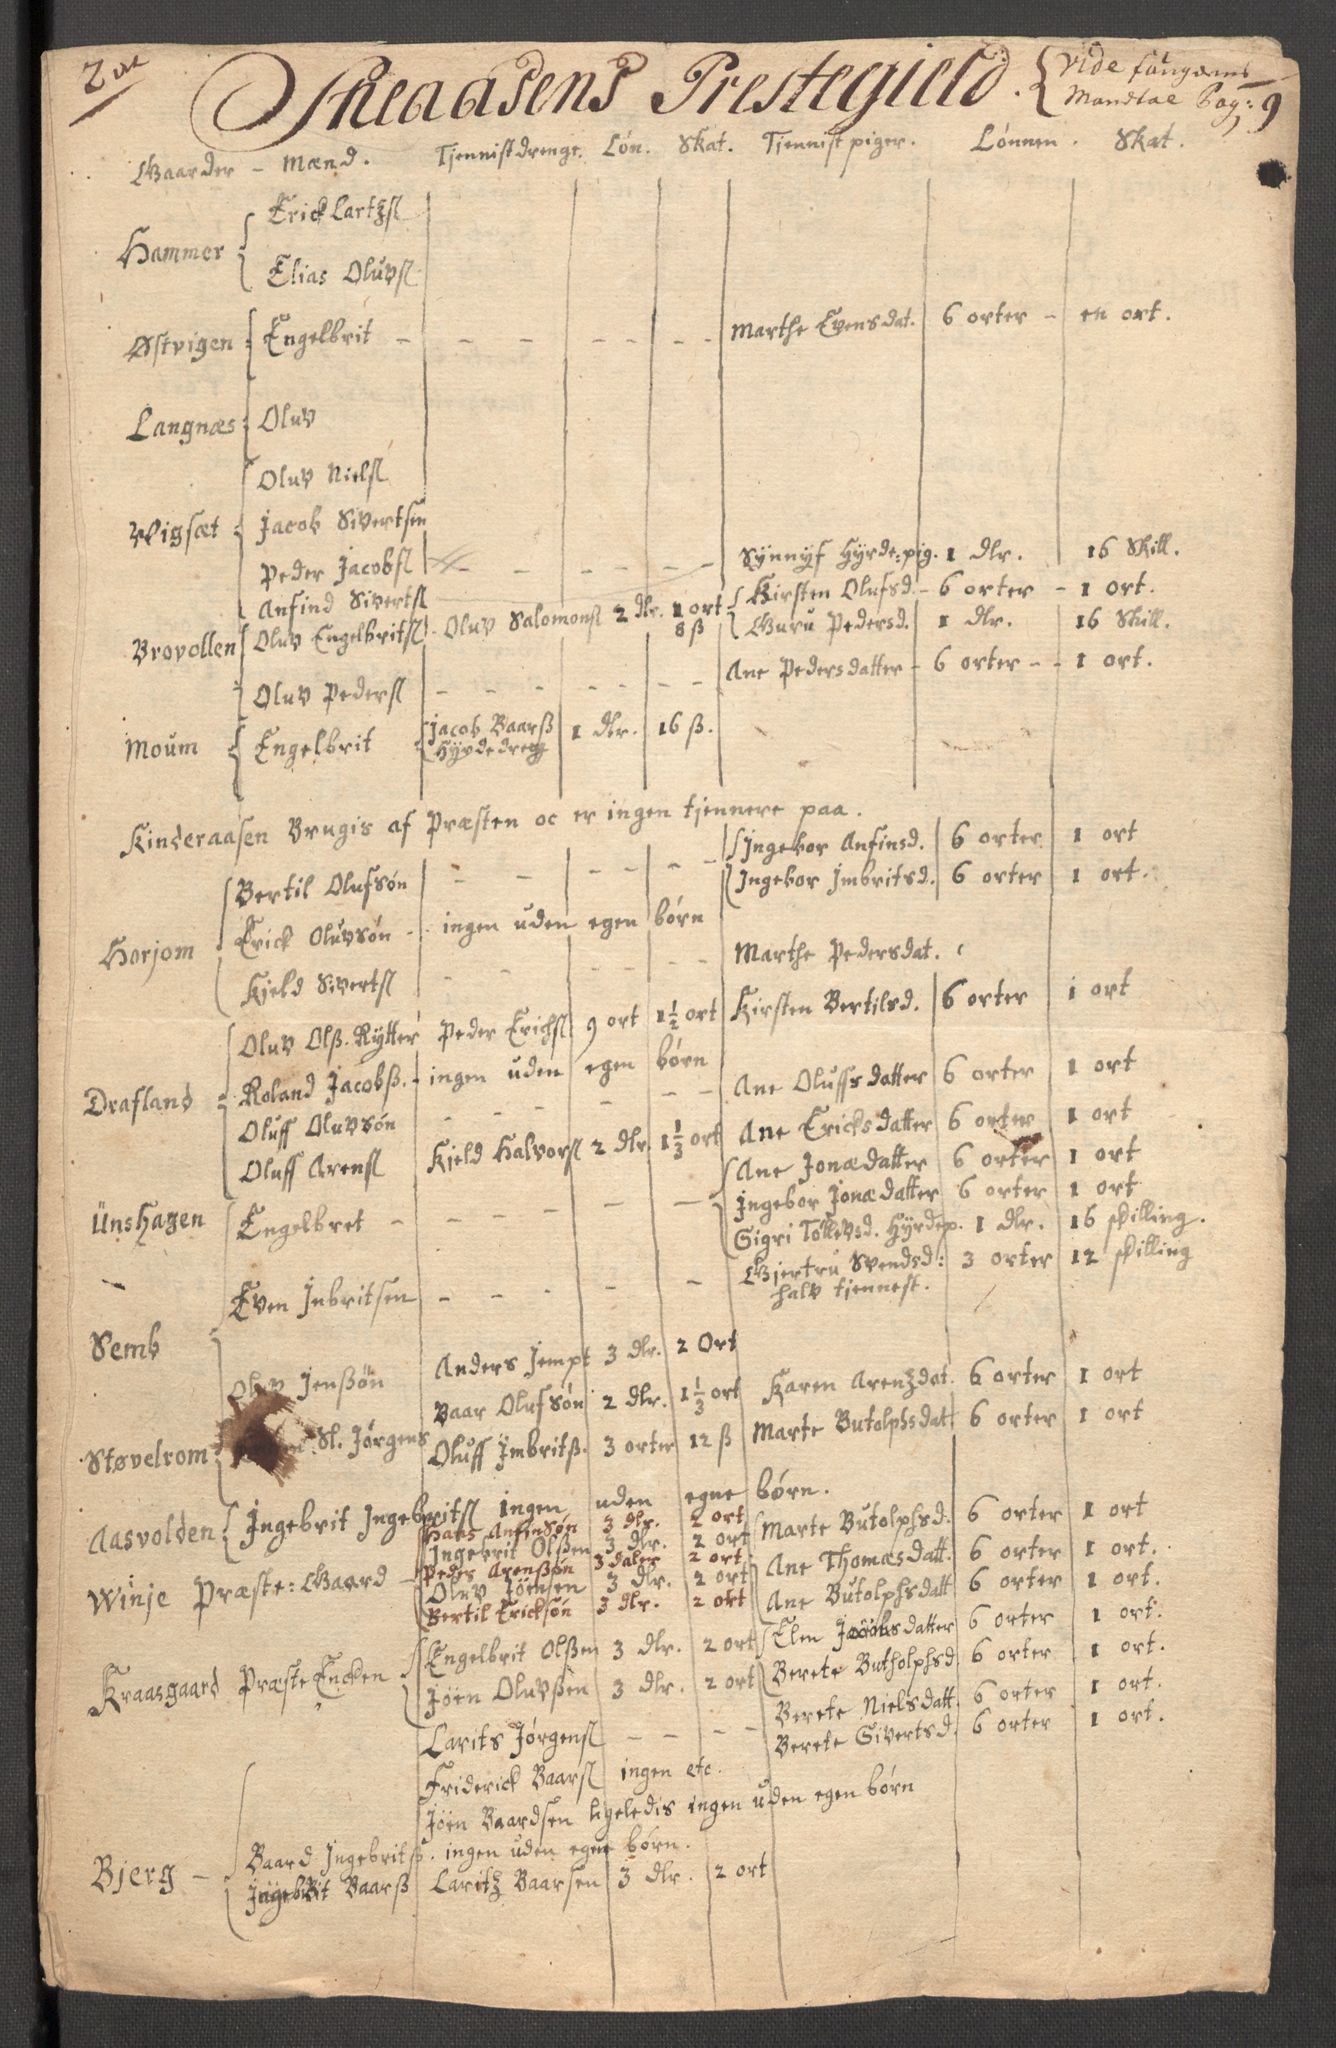 2
Skeaasens Prestegield. { Vide fougdens
Mandtal Pag: 9
Gaarder - Mænd. Tjennistdrenge. Løn. Skat. Tjennistpiger. Lønnen. Skat.
Erick Lartzsl
Hammer
Elias Oluvsl
Østvigen Engelbrit - - - - - - - Marthe Evensdat. 6 orter - en ort.
Langnæs Oluv
Oluv Nielsl
Wigsæt Jacob Sivertsen
Peder Jacobsl - - - - - - Synnyf Hyrde:pig. 1 dlr. 16 Skill.
Anfind Sivertsl
Brovollen Oluv Engelbritsl. Oluv Salomonsl 2 dlr. 1 ort 8 ß { Kirsten Olufsd. - 6 orter - 1 ort.
Guru Pedersd. 1 dlr. 16 Skill.
Oluv Pedersl - - - - - - Ane Pedersdatter - 6 orter - - 1 ort.
Moum { Engelbrit { Jacob Baarß 1 dlr. 16 ß.
Hyrdedreng
Kinderaasen Brugis af Præsten oc er ingen tjennere paa.
Bertil Olufsøn - - - - - - { Ingebor Anfinsd. 6 orter 1 ort
Ingebor Imbritsd. 6 orter 1 ort.
Horjom Erick Oluvsøn - ingen uden egen børn
Kjeld Sivertsl - - - - - - Marthe Pedersdat.
Oluv Olß. Rytter Peder Erichsl 9 ort 1 1/2 ort Kirsten Bertilsd. 6 orter 1 ort
Drafland Roland Jacobß. - ingen uden egen børn
Oluff Oluvsøn - - - - - - Ane Oluffsdatter 6 orter 1 ort
Oluff Arensl Kjeld Halvorsl 2 dlr. 1 1/3 ort Ane Ericksdatter 6 orter 1 ort
Ünshagen Engelbret - - - - - - { Ane Jonædatter 6 orter 1 ort
Ingebor Jonædatter 6 orter 1 ort
Sigri Tollevsd. Hyrdep. 1 dlr. 16 skilling.
Even Inbritsen - - - - - Gjertru Svendsd: 3 orter 12 skilling
halv tjennest.
Semb
Oluv Jenßøn Anders Jempt 3 dlr. 2 Ort
Baar Olufsøn 2 dlr. 1 1/3 ort Karen Arenzdat. 6 orter 1 ort
Støvelrom Sl. Jørgens Oluff Imbritß. 3 orter 12 ß Marte Butolphsdat 6 orter 1 ort
Aasvolden { Ingebrit Ingebritsl ingen uden egne børn.
Hans Anfinsøn 3 dlr. 2 ort { Marte Butolphsd. 6 orter 1 ort
Ingebrit Olßen 3 dlr. 2 ort
Winje Præste: Gaard - Peder Arenßøn 3 daler 2 ort. Ane Thomasdatt. 6 orter 1 ort.
Oluv Jöensen 3 dlr. 2 ort Ane Butolphsdatt 6 orter 1 ort.
Bertil Ericksøn 3 dlr. 2 ort
Kraasgaard Præste Encken { Engelbrit Olßen 3 dlr. 2 ort { Elen Jacobsdatter 6 orter 1 ort.
Jöen Oluvßen 3 dlr. 2 ort Berete Butholphsd. 6 orter 1 ort.
Larits Jørgensl - - - - Berete Nielsdatt. 6 orter 1 ort.
Berete Sivertsd. 6 orter 1 ort.
Friderick Baarsl ingen etc.
Jöen Baardsen ligeledis ingen uden egen børn
Bjerg - Baard Ingebritß. ingen uden egne børn.
Ingebrit Baarß Laritz Baarsen 3 dlr. 2 ort